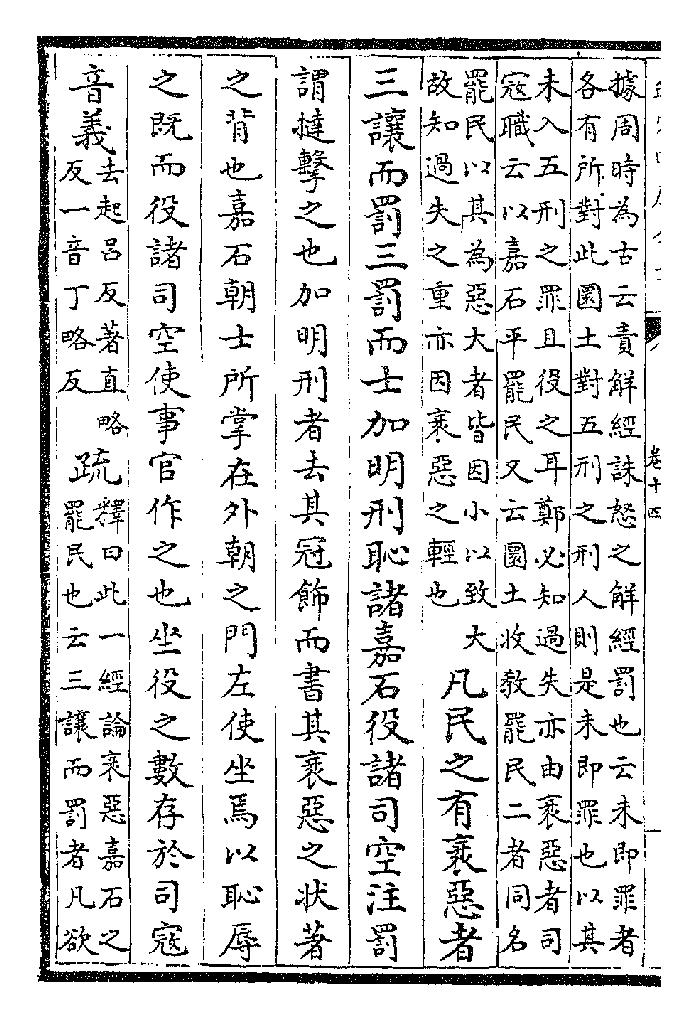 卷十四
據周時為古云責解經誅怒之解經罰也云未即罪者
各有所對此圜土對五刑之刑人則是未即罪也以其
未入五刑之罪且役之耳鄭必知過失亦由衺惡者司
寇職云以嘉石平罷民又云圜土收教罷民二者同名
罷民以其為惡大者皆因小以致大
故知過失之重亦因衺惡之輕也
凡民之有衺惡者
三讓而罰三罰而士加明刑恥諸嘉石役諸司空注罰
謂撻擊之也加明刑者去其冠飾而書其衺惡之状著
之背也嘉石朝士所掌在外朝之門左使坐焉以恥辱
之既而役諸司空使事官作之也坐役之數存於司寇
音義
去起呂反著直略
反一音丁略反
疏
釋曰此一經論衺惡嘉石之
罷民也云三讓而罰者凡欲